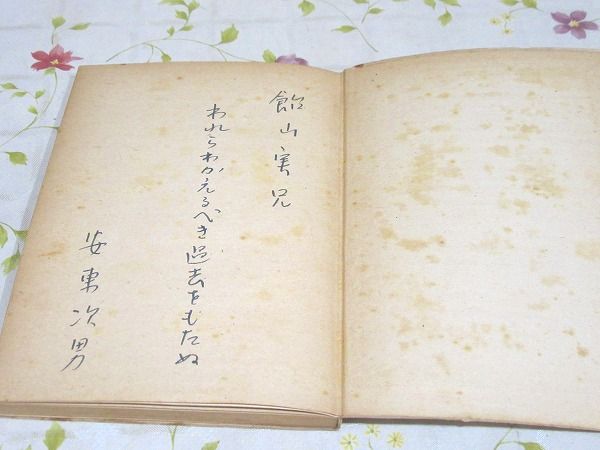 舘山実兄
われらわかえるべき過去をもたぬ
安東次男